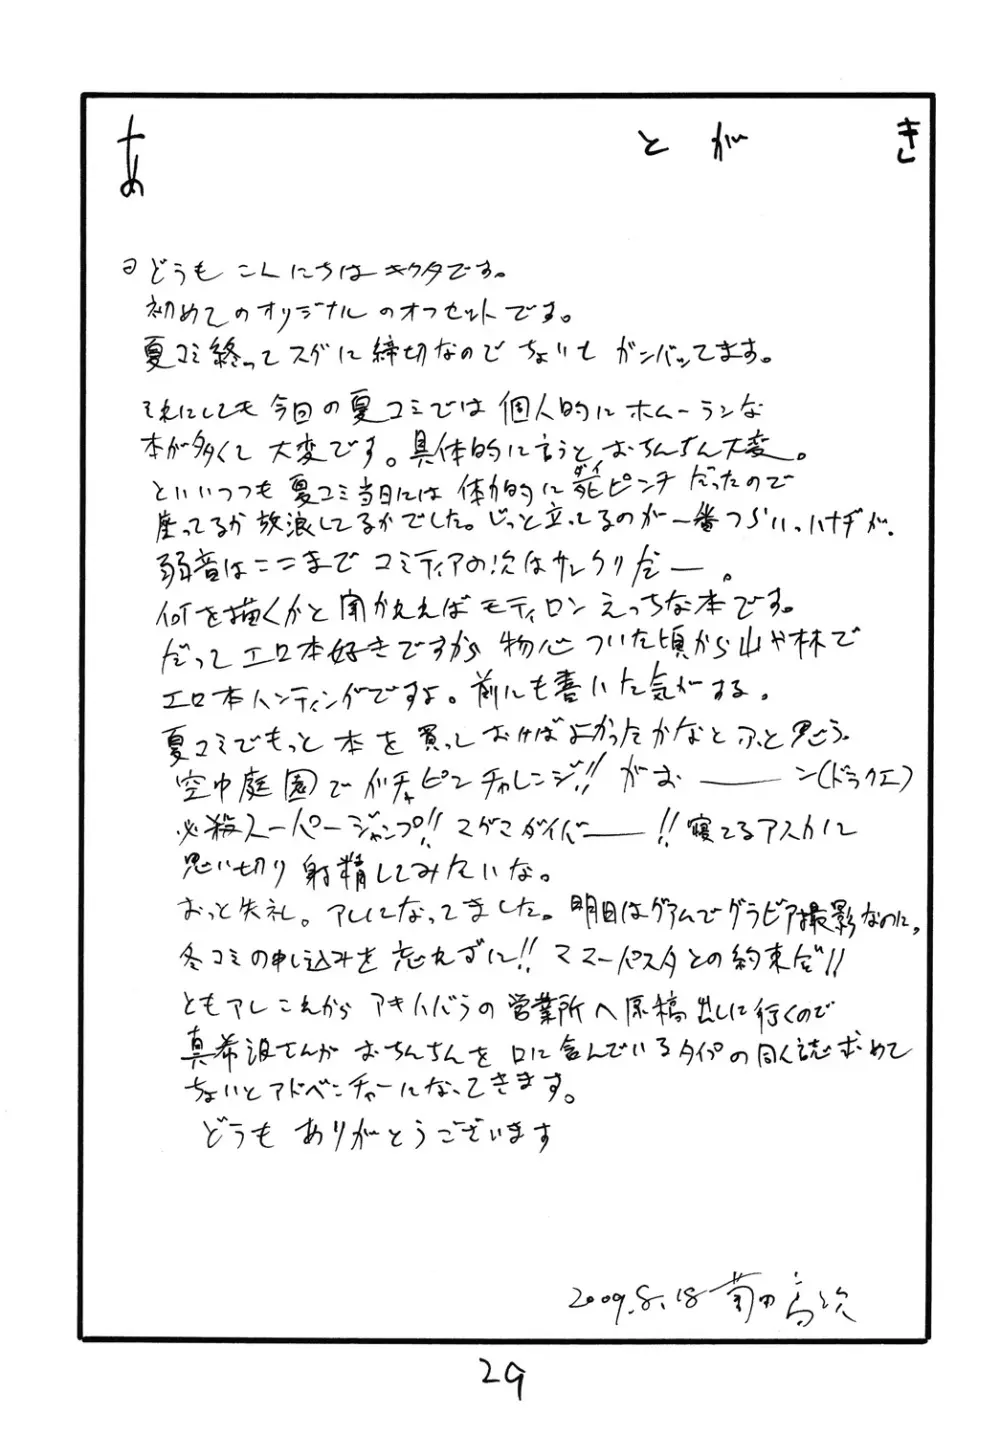 あとがき
どうも こんにちは キクタです。
初めてのオリジナル のオフセットです。
夏コミ終ってスグに締切なので ちょいと ガンバッてます。
それにしても今回の夏コミでは 個人的に ホームーランな
本が多くて 大変です。具体的に言うと おちんちん大変。
といいつつも 夏コミ当日には 体力的に 死ピンチ だったので
ダイ
座ってるか 放浪してるかでした。じっと立ってるのが一番つらい、ハナヂが。
弱音はここまで コミティアの次はサンクリだー。
何を描くかと聞かれればモティロン えっちな本です。
だって エロ本好きですから 物心 ついた頃から山や林で
エロ本ハンティングですよ。前にも書いた気がする。
夏コミでもっと 本を買っておけばよかったかなと ふと思う。
空中庭園で ガチャピンチャレンジ!! がお――ン(ドラクエ)
必殺スーパージャンプ!! マグマダイバー――!! 寝てるアスカに
思い切り射精してみたいな。
おっと失礼。アレになってました。明日はグアムでグラビア撮影なのに。
冬コミの申し込みを忘れずに!! ママーパスタとの約束だ!!
ともアレ これから アキハバラの営業所へ原稿出しに行くので
真希波さんが おちんちんを 口に含んでいるタイプの同人誌求めて
ちょいとアドベンチャーになってきます。
どうも ありがとうございます
2009.8.18 菊田高次
29